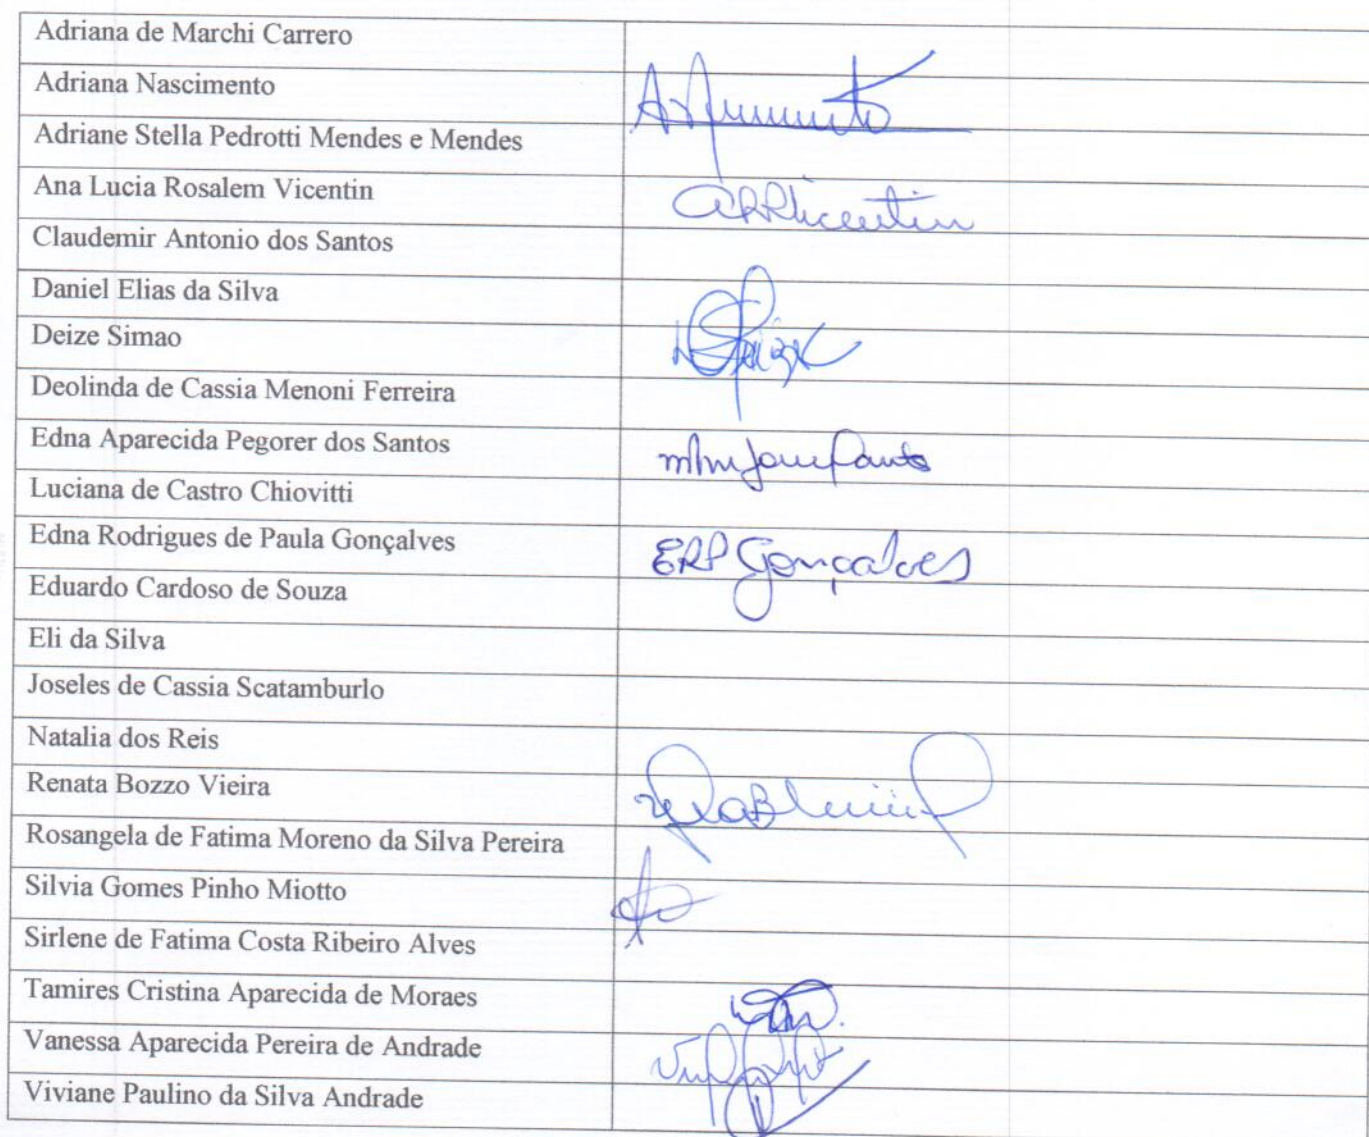 Adriana de Marchi Carrero
Adriana Nascimento
Adriane Stella Pedrotti Mendes e Mendes
Ana Lucia Rosalem Vicentin
Claudemir Antonio dos Santos
Daniel Elias da Silva
Deize Simao
Deolinda de Cassia Menoni Ferreira
Edna Aparecida Pegorer dos Santos
Luciana de Castro Chiovitti
Edna Rodrigues de Paula Gonçalves
ERP Gonçalves
Eduardo Cardoso de Souza
Eli da Silva
Joseles de Cassia Scatamburlo
Natalia dos Reis
Renata Bozzo Vieira
Rosangela de Fatima Moreno da Silva Pereira
Silvia Gomes Pinho Miotto
Sirlene de Fatima Costa Ribeiro Alves
Tamires Cristina Aparecida de Moraes
Vanessa Aparecida Pereira de Andrade
Viviane Paulino da Silva Andrade